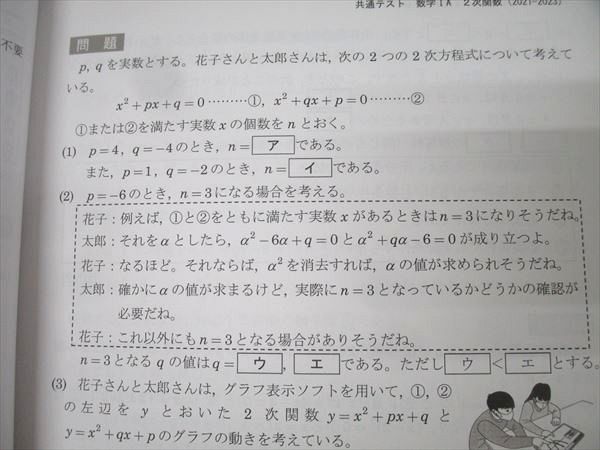 共通テスト 数学ⅠA 2次関数 (2021-2023)
不要
問題
p, q を実数とする。花子さんと太郎さんは, 次の2つの2次方程式について考えて
いる。
x²+px+q=0 ………①, x²+qx+p=0 ………②
①または②を満たす実数 x の個数を n とおく。
(1) p=4, q=-4 のとき, n= ア である。
また, p=1, q=-2 のとき, n= イ である。
(2) p=-6 のとき, n=3 になる場合を考える。
花子:例えば, ①と②をともに満たす実数 x があるときは n=3 になりそうだね。
太郎:それを α としたら, α²-6α+q=0 と α²+qα-6=0 が成り立つよ。
花子:なるほど。それならば, α² を消去すれば, α の値が求められそうだね。
太郎:確かに α の値が求まるけど, 実際に n=3 となっているかどうかの確認が
必要だね。
花子:これ以外にも n=3 となる場合がありそうだね。
n=3 となる q の値は q= ウ , エ である。ただし ウ < エ とする。
(3) 花子さんと太郎さんは, グラフ表示ソフトを用いて, ①, ②
の左辺を y とおいた 2 次関数 y=x²+px+q と
y=x²+qx+p のグラフの動きを考えている。